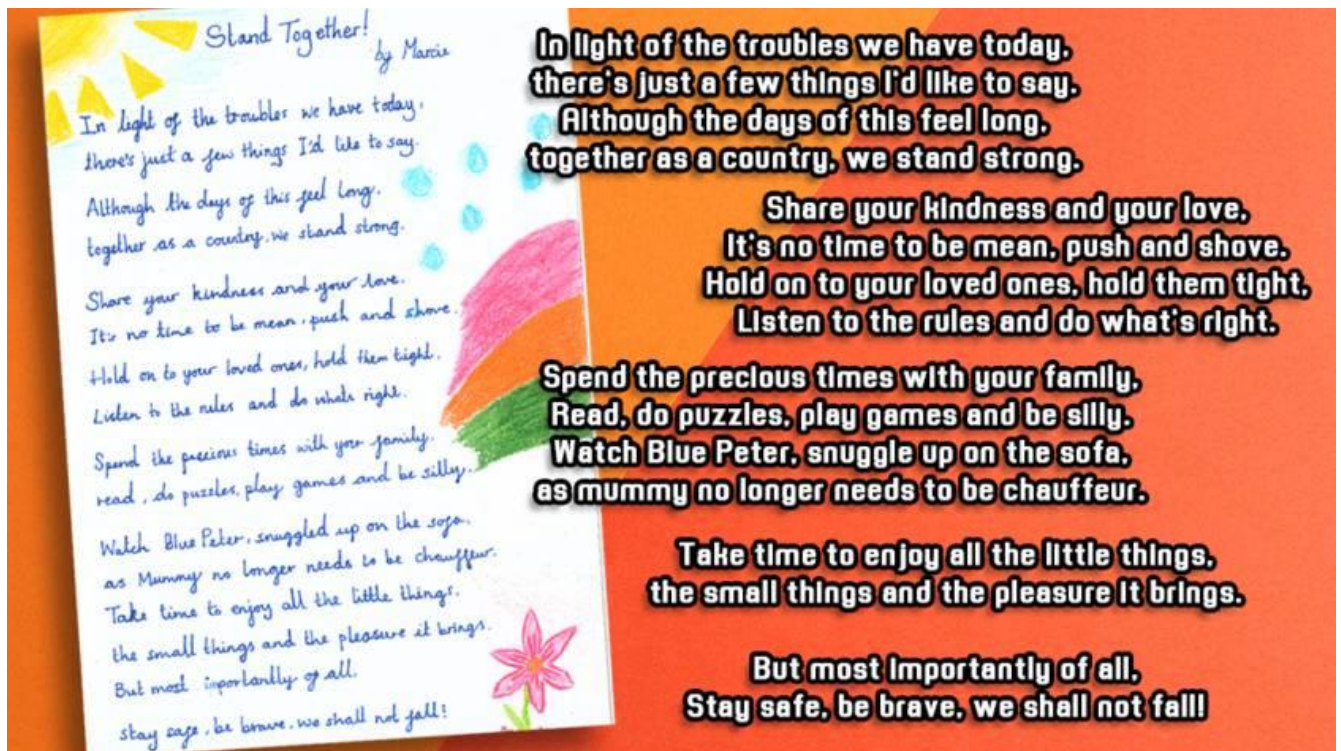 Stand Together!
by Marcie
In light of the troubles we have today,
there's just a few things I'd like to say.
Although the days of this feel long,
together as a country, we stand strong.
Share your kindness and your love,
It's no time to be mean, push and shove.
Hold on to your loved ones, hold them tight.
Listen to the rules and do whats right.
Spend the precious times with your family.
read, do puzzles, play games and be silly.
Watch Blue Peter, snuggled up on the sofa,
as Mummy no longer needs to be chauffeur.
Take time to enjoy all the little things.
the small things and the pleasure it brings.
But most importantly of all.
stay safe, be brave, we shall not fall!
In light of the troubles we have today,
there's just a few things I'd like to say.
Although the days of this feel long,
together as a country, we stand strong.
Share your kindness and your love,
It's no time to be mean, push and shove.
Hold on to your loved ones, hold them tight,
Listen to the rules and do what's right.
Spend the precious times with your family,
Read, do puzzles, play games and be silly.
Watch Blue Peter, snuggle up on the sofa,
as mummy no longer needs to be chauffeur.
Take time to enjoy all the little things,
the small things and the pleasure it brings.
But most importantly of all,
Stay safe, be brave, we shall not fall!